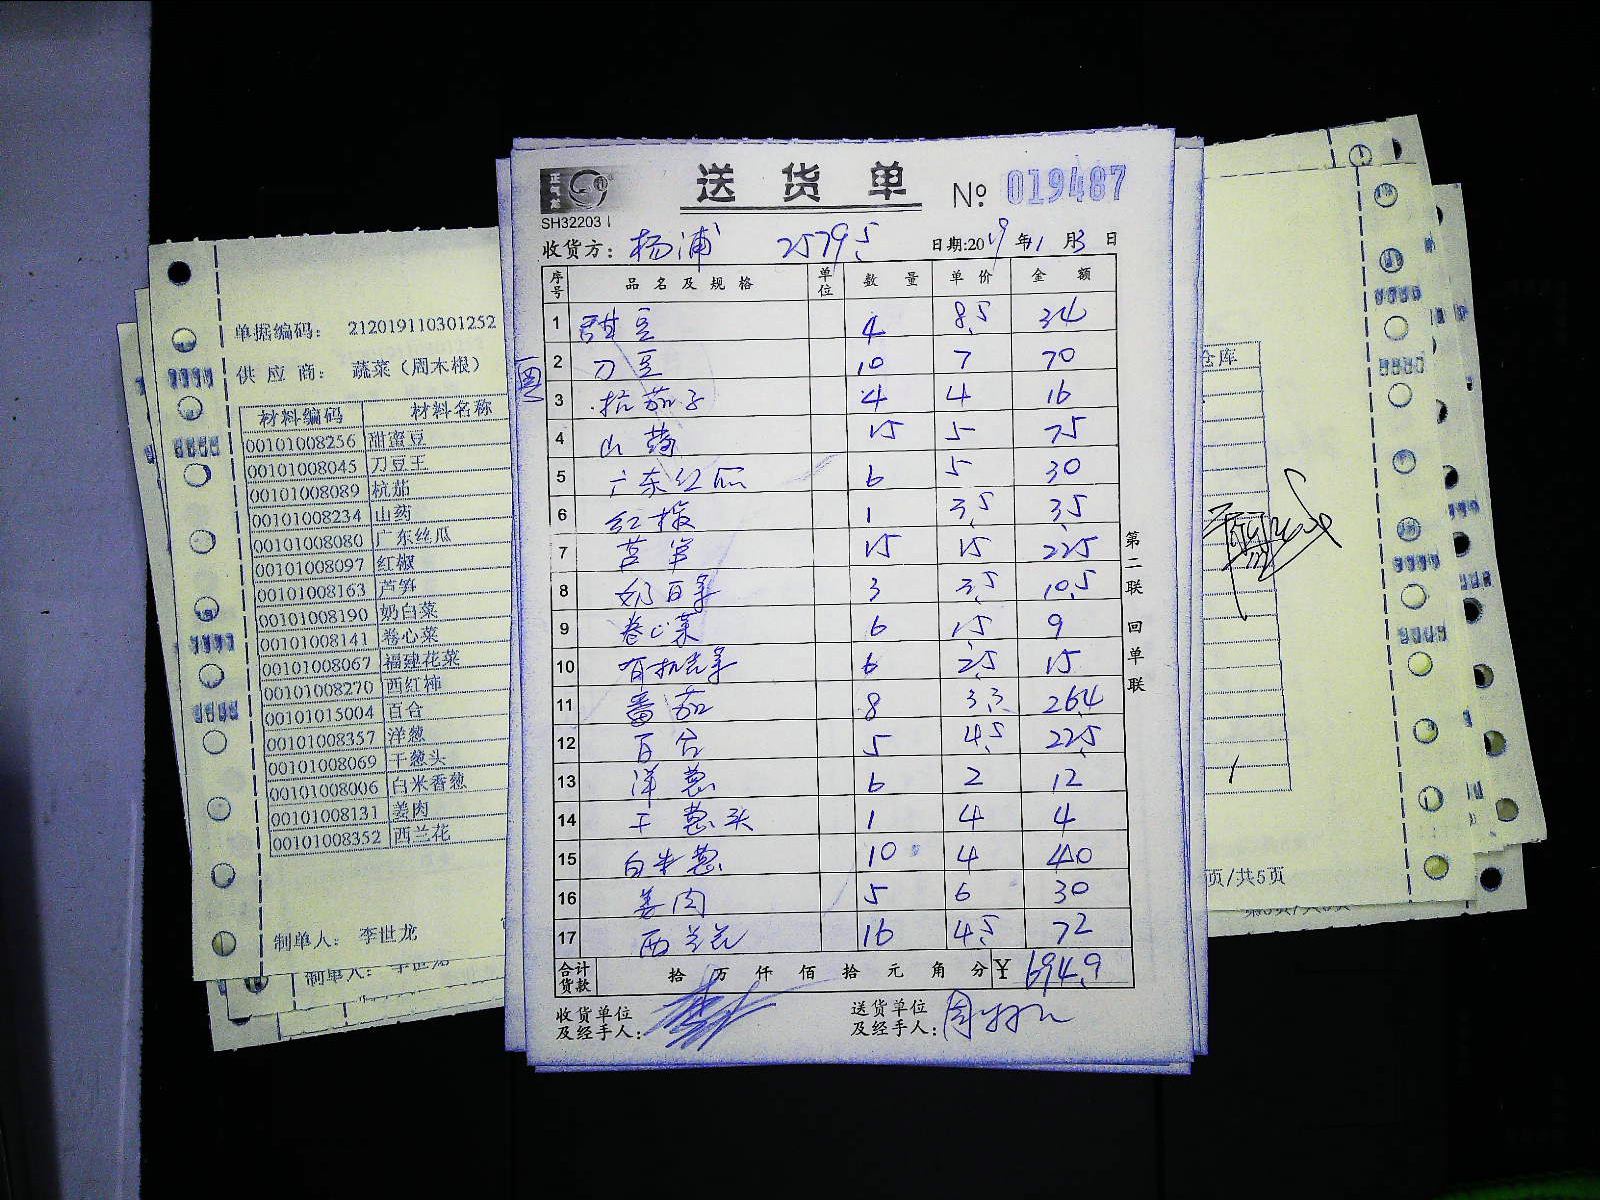 正气龙
SH32203
送货单
№ 019487
收货方: 杨浦 2579.5 日期:2019年1月3日
序号 品名及规格 单位 数量 单价 金额
1 甜豆 4 8.5 34
2 刀豆 10 7 70
3 杭茄子 4 4 16
4 山药 15 5 75
5 广东红瓜 6 5 30
6 红椒 1 3.5 3.5
7 芦笋 15 15 225
8 奶白菜 3 3.5 10.5
9 卷心菜 6 1.5 9
10 有机花菜 6 2.5 15
11 番茄 8 3.3 26.4
12 百合 5 4.5 22.5
13 洋葱 6 2 12
14 干葱头 1 4 4
15 白米葱 10 4 40
16 姜肉 5 6 30
17 西兰花 16 4.5 72
合计货款 拾 万 仟 佰 拾 元 角 分 ¥ 694.9
收货单位及经手人:
送货单位及经手人:
第二联 回单联
单据编码: 212019110301252
供应商: 蔬菜(周木根)
材料编码 材料名称
00101008256 甜蜜豆
00101008045 刀豆王
00101008089 杭茄
00101008234 山药
00101008080 广东丝瓜
00101008097 红椒
00101008163 芦笋
00101008190 奶白菜
00101008141 卷心菜
00101008067 福建花菜
00101008270 西红柿
00101015004 百合
00101008357 洋葱
00101008069 干葱头
00101008006 白米香葱
00101008131 姜肉
00101008352 西兰花
制单人: 李世龙
制单人: 李世龙
仓库
页/共5页